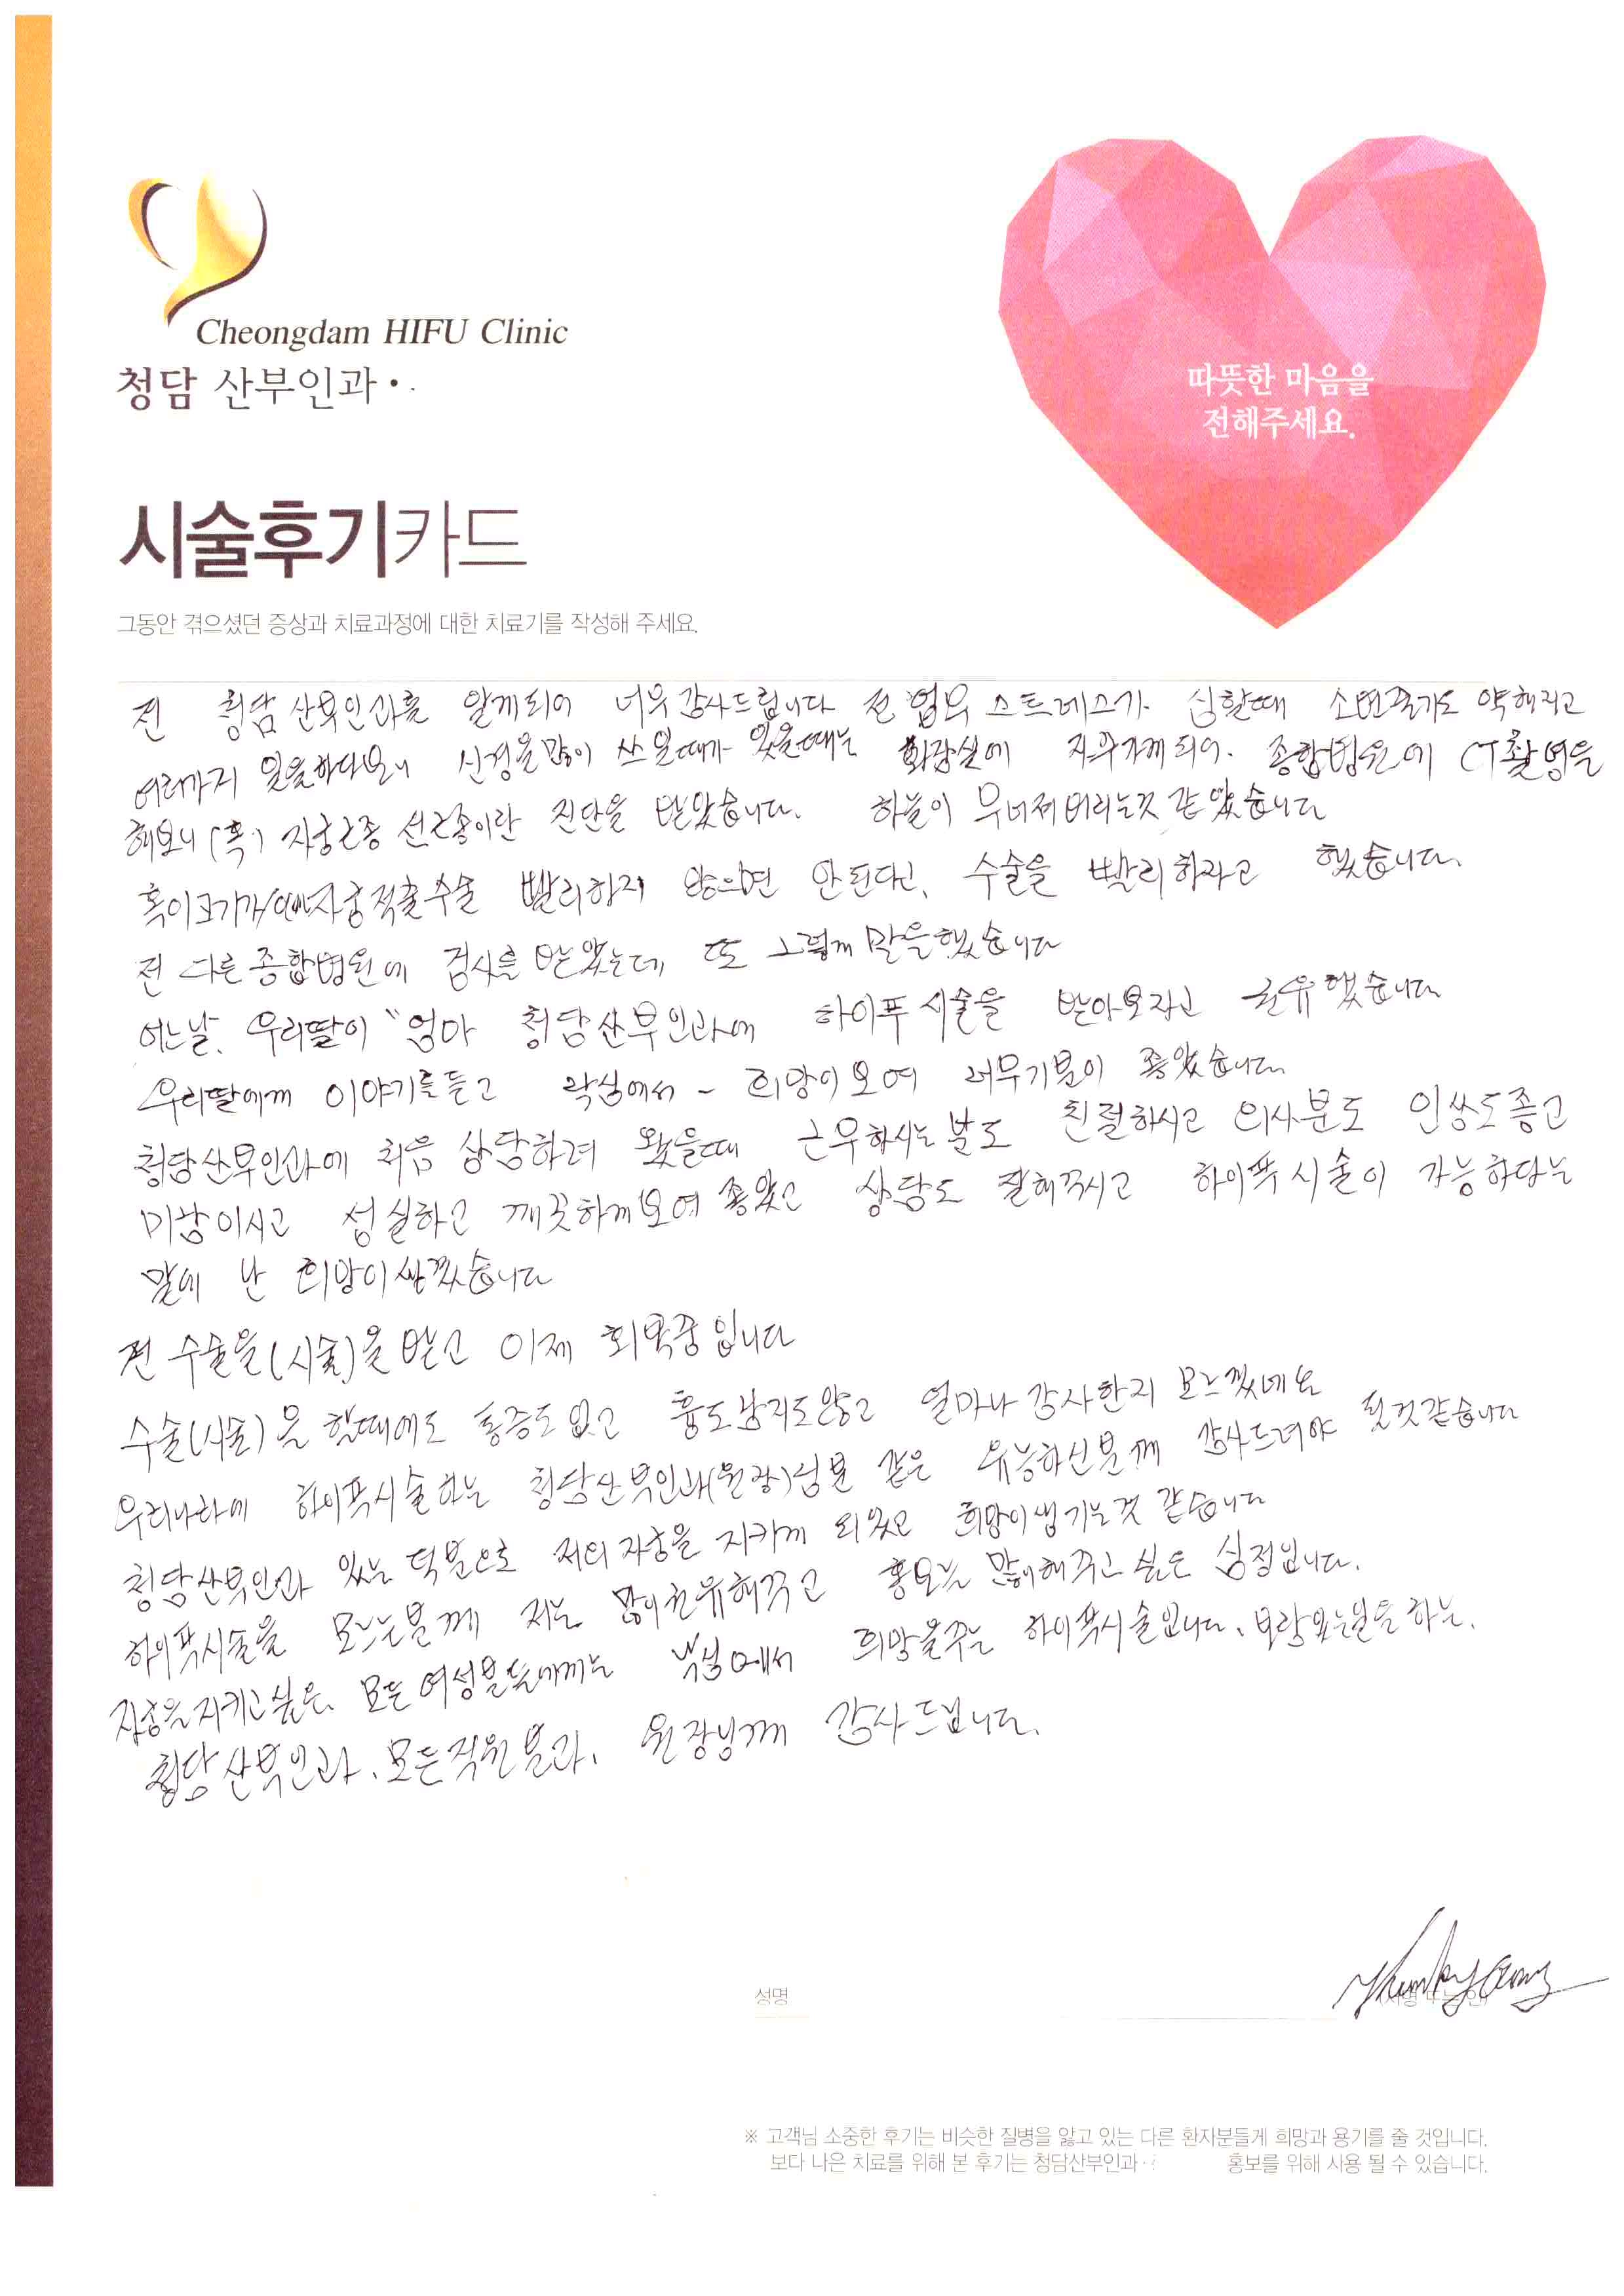 Cheongdam HIFU Clinic
청담 산부인과
따뜻한 마음을
전해주세요.
시술후기카드
그동안 겪으셨던 증상과 치료과정에 대한 치료기를 작성해 주세요.
전 청담산부인과를 알게되어 너무 감사드립니다 전 업무 스트레스가 심할때 소변줄기도 약해지고
여러가지 일을하다보니 신경을많이 쓰일때가 있을때는 화장실에 자주가게되어. 종합병원에 CT촬영을
해보니 (혹) 자궁근종 선근종이란 진단을 받았습니다. 하늘이 무너져버리는것 같았습니다
혹이크기가 자궁적출수술 빨리하지 않으면 안된다고, 수술을 빨리하라고 했습니다.
전 다른종합병원에 검사를 받았는데 또 그렇게 말을했습니다
어느날. 우리딸이 "엄마 청담산부인과에 하이푸 시술을 받아보자고 권유했습니다
우리딸에게 이야기를듣고 낙심에서 - 희망이보여 너무기분이 좋았습니다
청담산부인과에 처음 상담하러 왔을때 근무하시는 분도 친절하시고 의사분도 인상도좋고
미남이시고 성실하고 깨끗하게보여 좋았고 상담도 잘해주시고 하이푸시술이 가능하다는
말에 난 희망이생겼습니다
전 수술을(시술)을 받고 이제 회복중입니다
수술(시술)을 할때에도 통증도 없고 흉도남지도않고 얼마나 감사한지 모르겠네요
우리나라에 하이푸시술하는 청담산부인과(원장)님분 같은 유능하신분께 감사드려야 될것같습니다
청담산부인과 있는 덕분으로 저의 자궁을 지키게 되었고 희망이생기는것 같습니다
하이푸시술을 모르는분께 저는 많이권유해주고 홍보는 많이해주고 싶은 심정입니다.
자궁을지키고싶은. 모든여성분들에게는 낙심에서 희망을주는 하이푸시술입니다. 보람있는일을 하는.
청담산부인과. 모든직원분과. 원장님께 감사드립니다.
성명
※ 고객님 소중한 후기는 비슷한 질병을 앓고 있는 다른 환자분들게 희망과 용기를 줄 것입니다.
보다 나은 치료를 위해 본 후기는 청담산부인과 홍보를 위해 사용 될 수 있습니다.